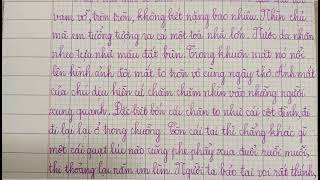 vạm vỡ, tròn tròn, không biết nặng bao nhiêu. Nhìn chú
mà em tưởng tượng ra cả một toà nhà lớn. Nước da nhăn
nheo tựa như màu đất bùn. Trong khuôn mặt nó nổi
lên hình ảnh đôi mắt to tròn vô cùng ngây thơ. Ánh mắt
của chú đều hiền cứ chăm chăm nhìn vào những người
xung quanh. Đặc biệt bốn cái chân to như cái cột đình, đi
đi lại lại ở trong chuồng. Còn cái tai thì chẳng khác gì
một cái quạt lúc nào cũng phe phẩy xua đuổi ruồi muỗi,
thi thoảng lại nằm im lìm. Người ta bảo tai voi rất thính,